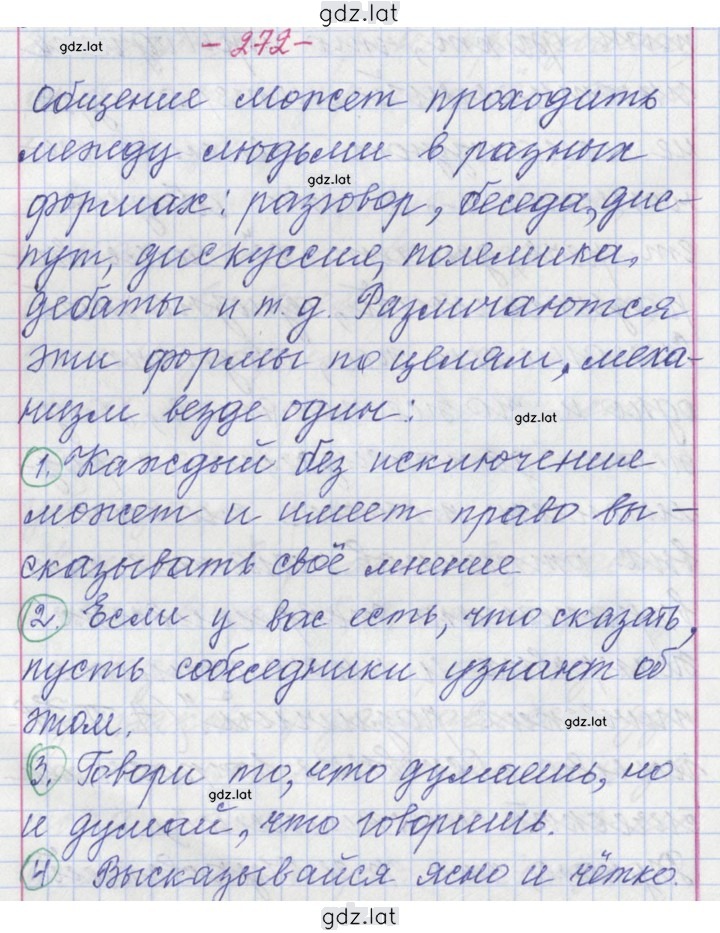 gdz.lat
gdz.lat
- 272 -
Общение может проходить
между людьми в разных
gdz.lat
формах: разговор, беседа, дис-
пут, дискуссия, полемика,
дебаты и т.д. Различаются
эти формы по целям, меха-
низм везде один:
gdz.lat
1. Каждый без исключения
может и имеет право вы-
сказывать своё мнение
2. Если у вас есть, что сказать,
пусть собеседники узнают об
этом.
gdz.lat
3. Говори то, что думаешь, но
gdz.lat
и думай, что говоришь.
4 Высказывайся ясно и чётко.
gdz.lat